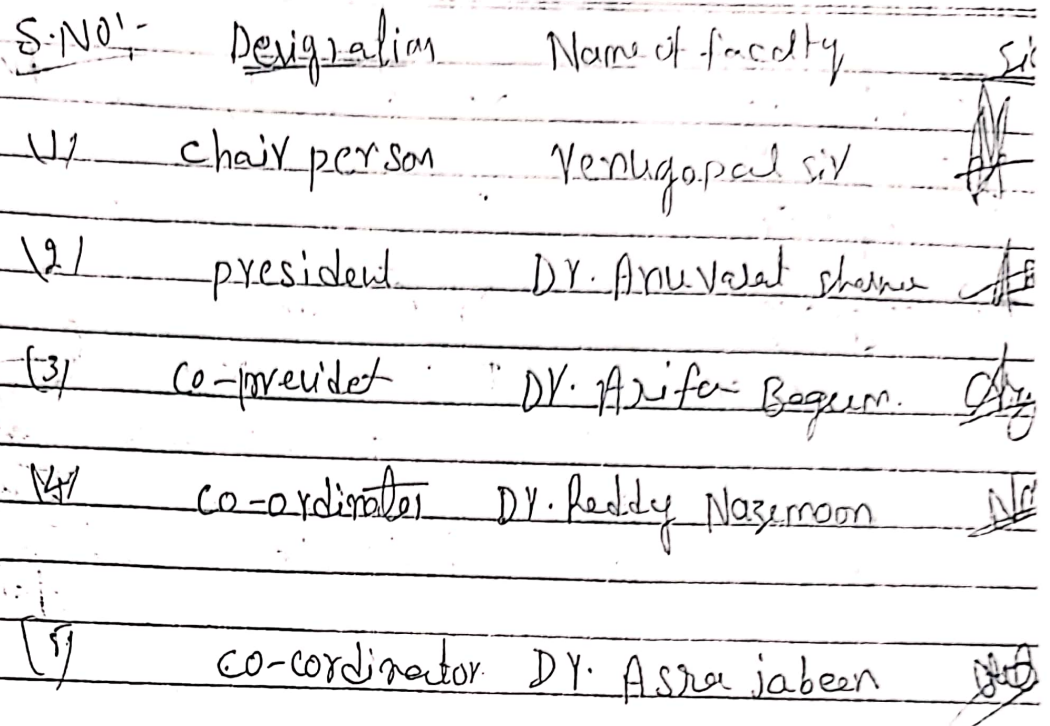 S.NO:- Designation Name of faculty Sig
(1) Chair person Venugopal sir
(2) president DY. Anuvalat sharma
(3) Co-previdet DY. Arifa Begum.
(4) co-ordinator DY. Reddy Nazemoon
(5) co-cordinator. DY. Asra jabeen